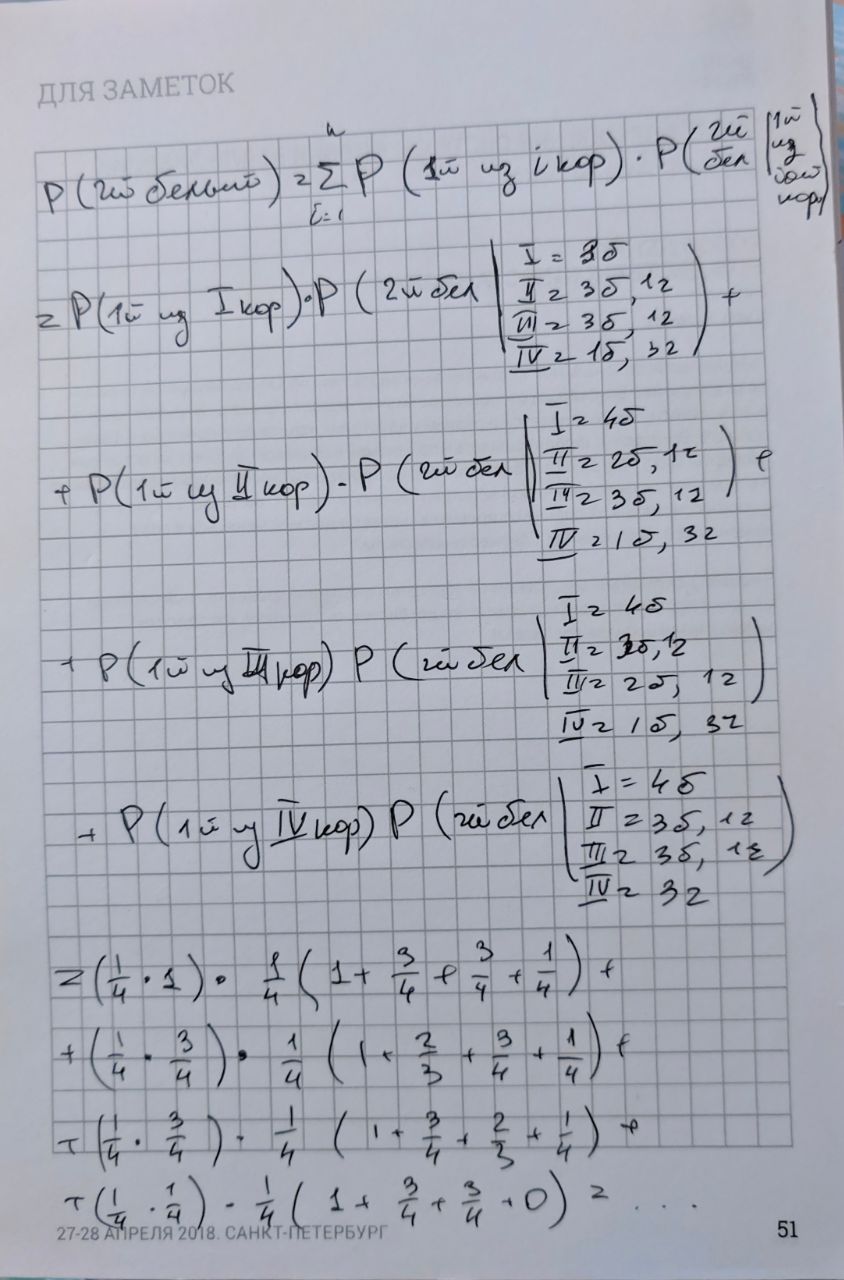 ДЛЯ ЗАМЕТОК
P(2й белый) = n∑i=1 P (1й из i кор) · P(2й бел | 1й из iой кор)
= P(1й из I кор) · P (2й бел | I = 3б
II = 3б, 1ч
III = 3б, 1ч
IV = 1б, 3ч) +
+ P(1й из II кор) · P (2й бел | I = 4б
II = 2б, 1ч
III = 3б, 1ч
IV = 1б, 3ч) +
+ P(1й из III кор) P (2й бел | I = 4б
II = 3б, 1ч
III = 2б, 1ч
IV = 1б, 3ч)
+ P(1й из IV кор) P (2й бел | I = 4б
II = 3б, 1ч
III = 3б, 1ч
IV = 3ч)
= (1/4 · 1) · 1/4 (1 + 3/4 + 3/4 + 1/4) +
+ (1/4 · 3/4) · 1/4 (1 + 2/3 + 3/4 + 1/4) +
+ (1/4 · 3/4) · 1/4 (1 + 3/4 + 2/3 + 1/4) +
+ (1/4 · 1/4) · 1/4 (1 + 3/4 + 3/4 + 0) = ....
27-28 АПРЕЛЯ 2018. САНКТ-ПЕТЕРБУРГ
51